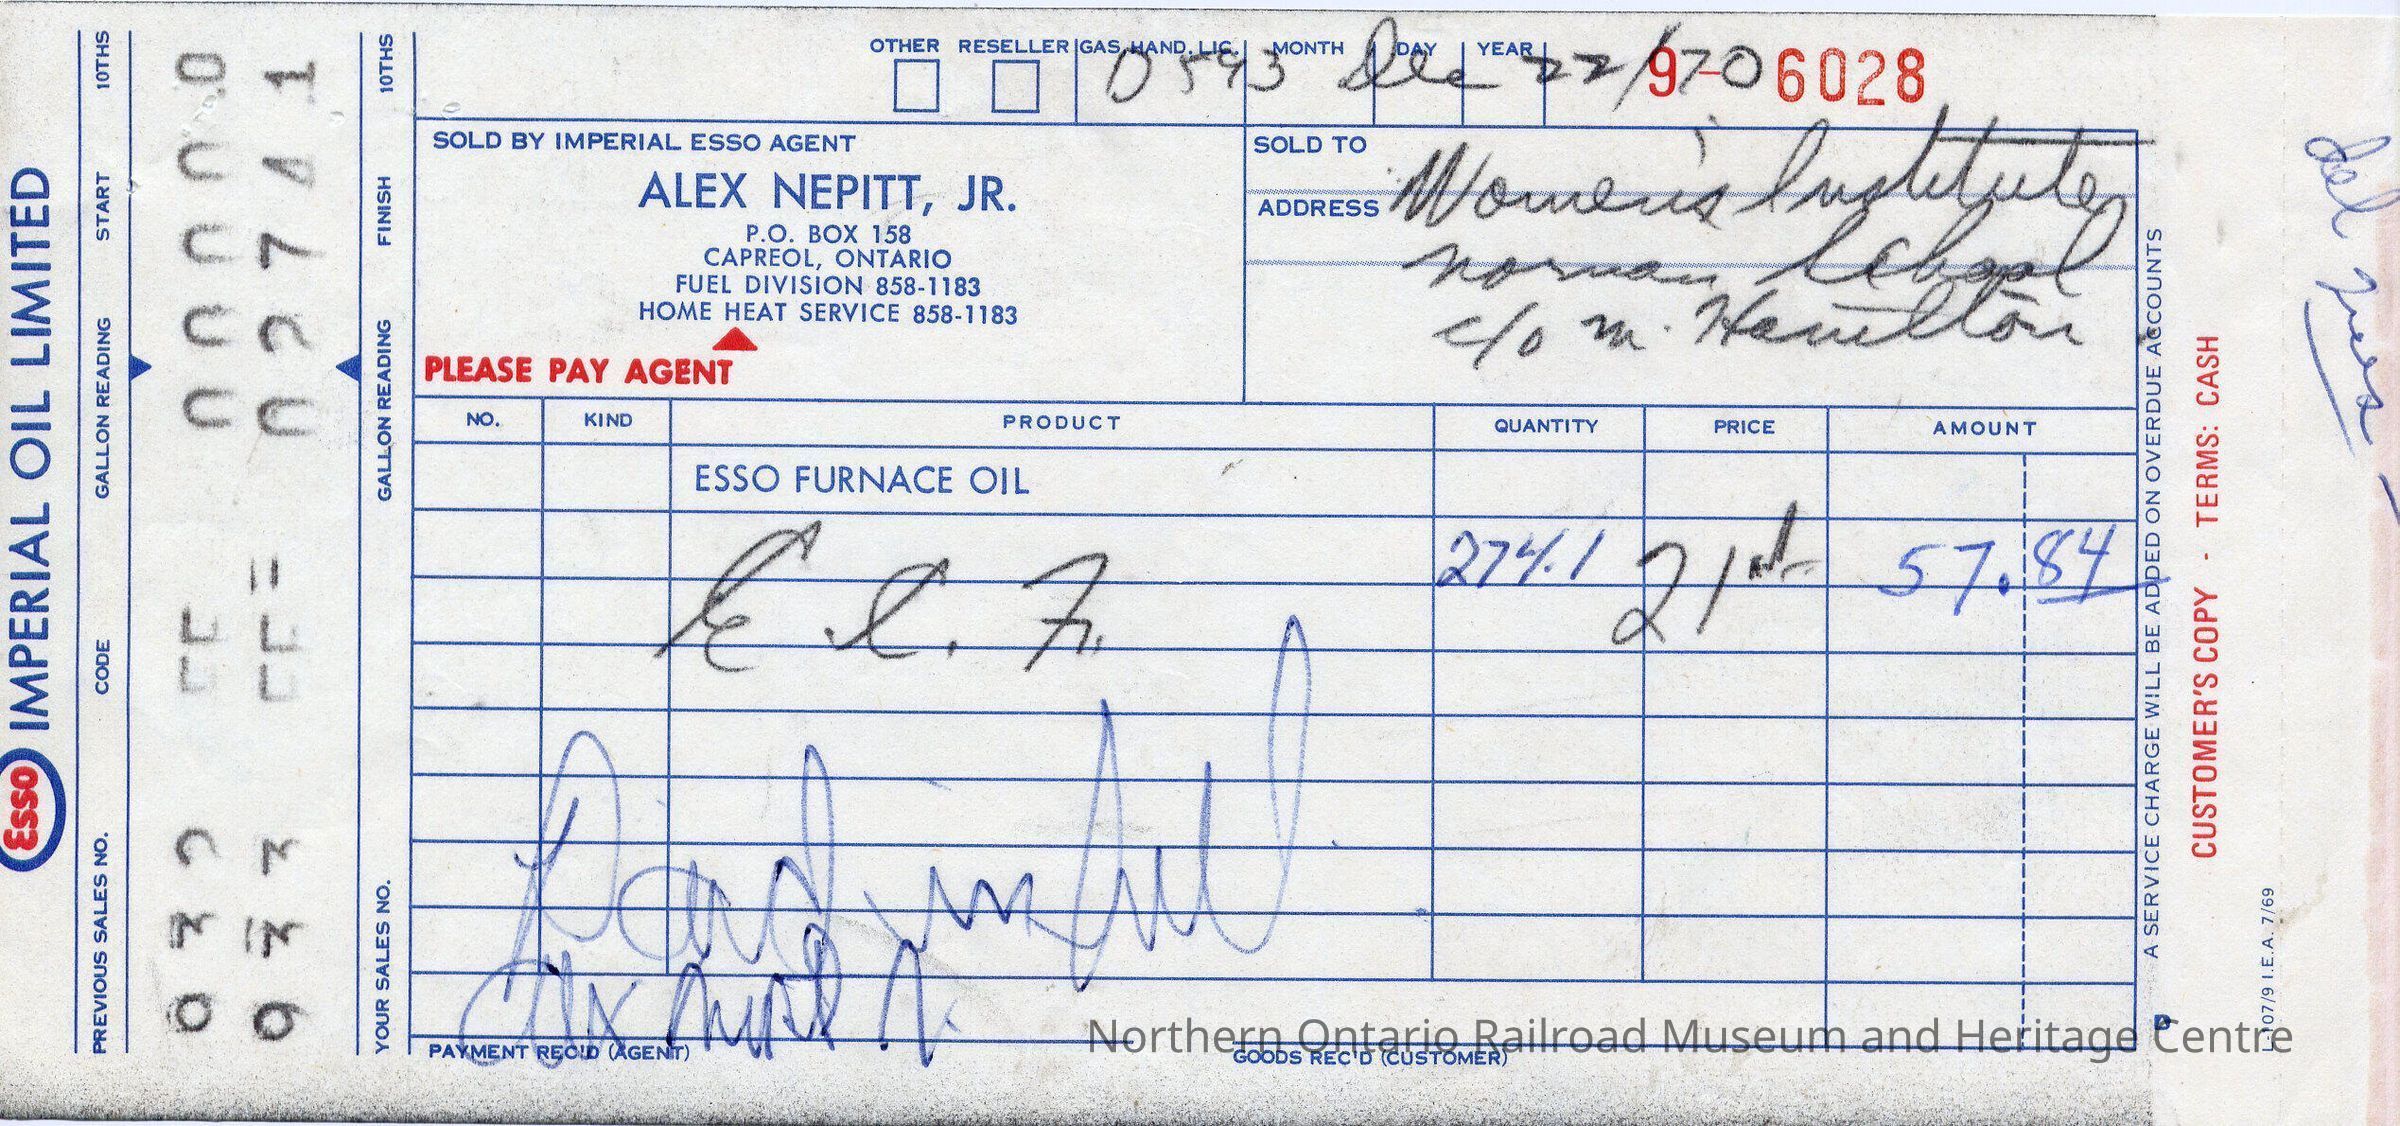 OTHER RESELLER GAS HAND. LIC. MONTH DAY YEAR
0593 Dec 22/70
9-06028
SOLD BY IMPERIAL ESSO AGENT
ALEX NEPITT, JR.
P.O. BOX 158
CAPREOL, ONTARIO
FUEL DIVISION 858-1183
HOME HEAT SERVICE 858-1183
PLEASE PAY AGENT
SOLD TO
ADDRESS
Women's Institute
Norman School
c/o M. Hamilton
NO. KIND PRODUCT QUANTITY PRICE AMOUNT
ESSO FURNACE OIL
274.1 21 57.84
Paid in full
Alex Nepitt Jr.
PAYMENT REC'D (AGENT)
GOODS REC'D (CUSTOMER)
Esso IMPERIAL OIL LIMITED
PREVIOUS SALES NO. CODE GALLON READING START 10THS
0000 0
02741
YOUR SALES NO. GALLON READING FINISH 10THS
A SERVICE CHARGE WILL BE ADDED ON OVERDUE ACCOUNTS
CUSTOMER'S COPY - TERMS: CASH
I.E.A. 7/69
Northern Ontario Railroad Museum and Heritage Centre